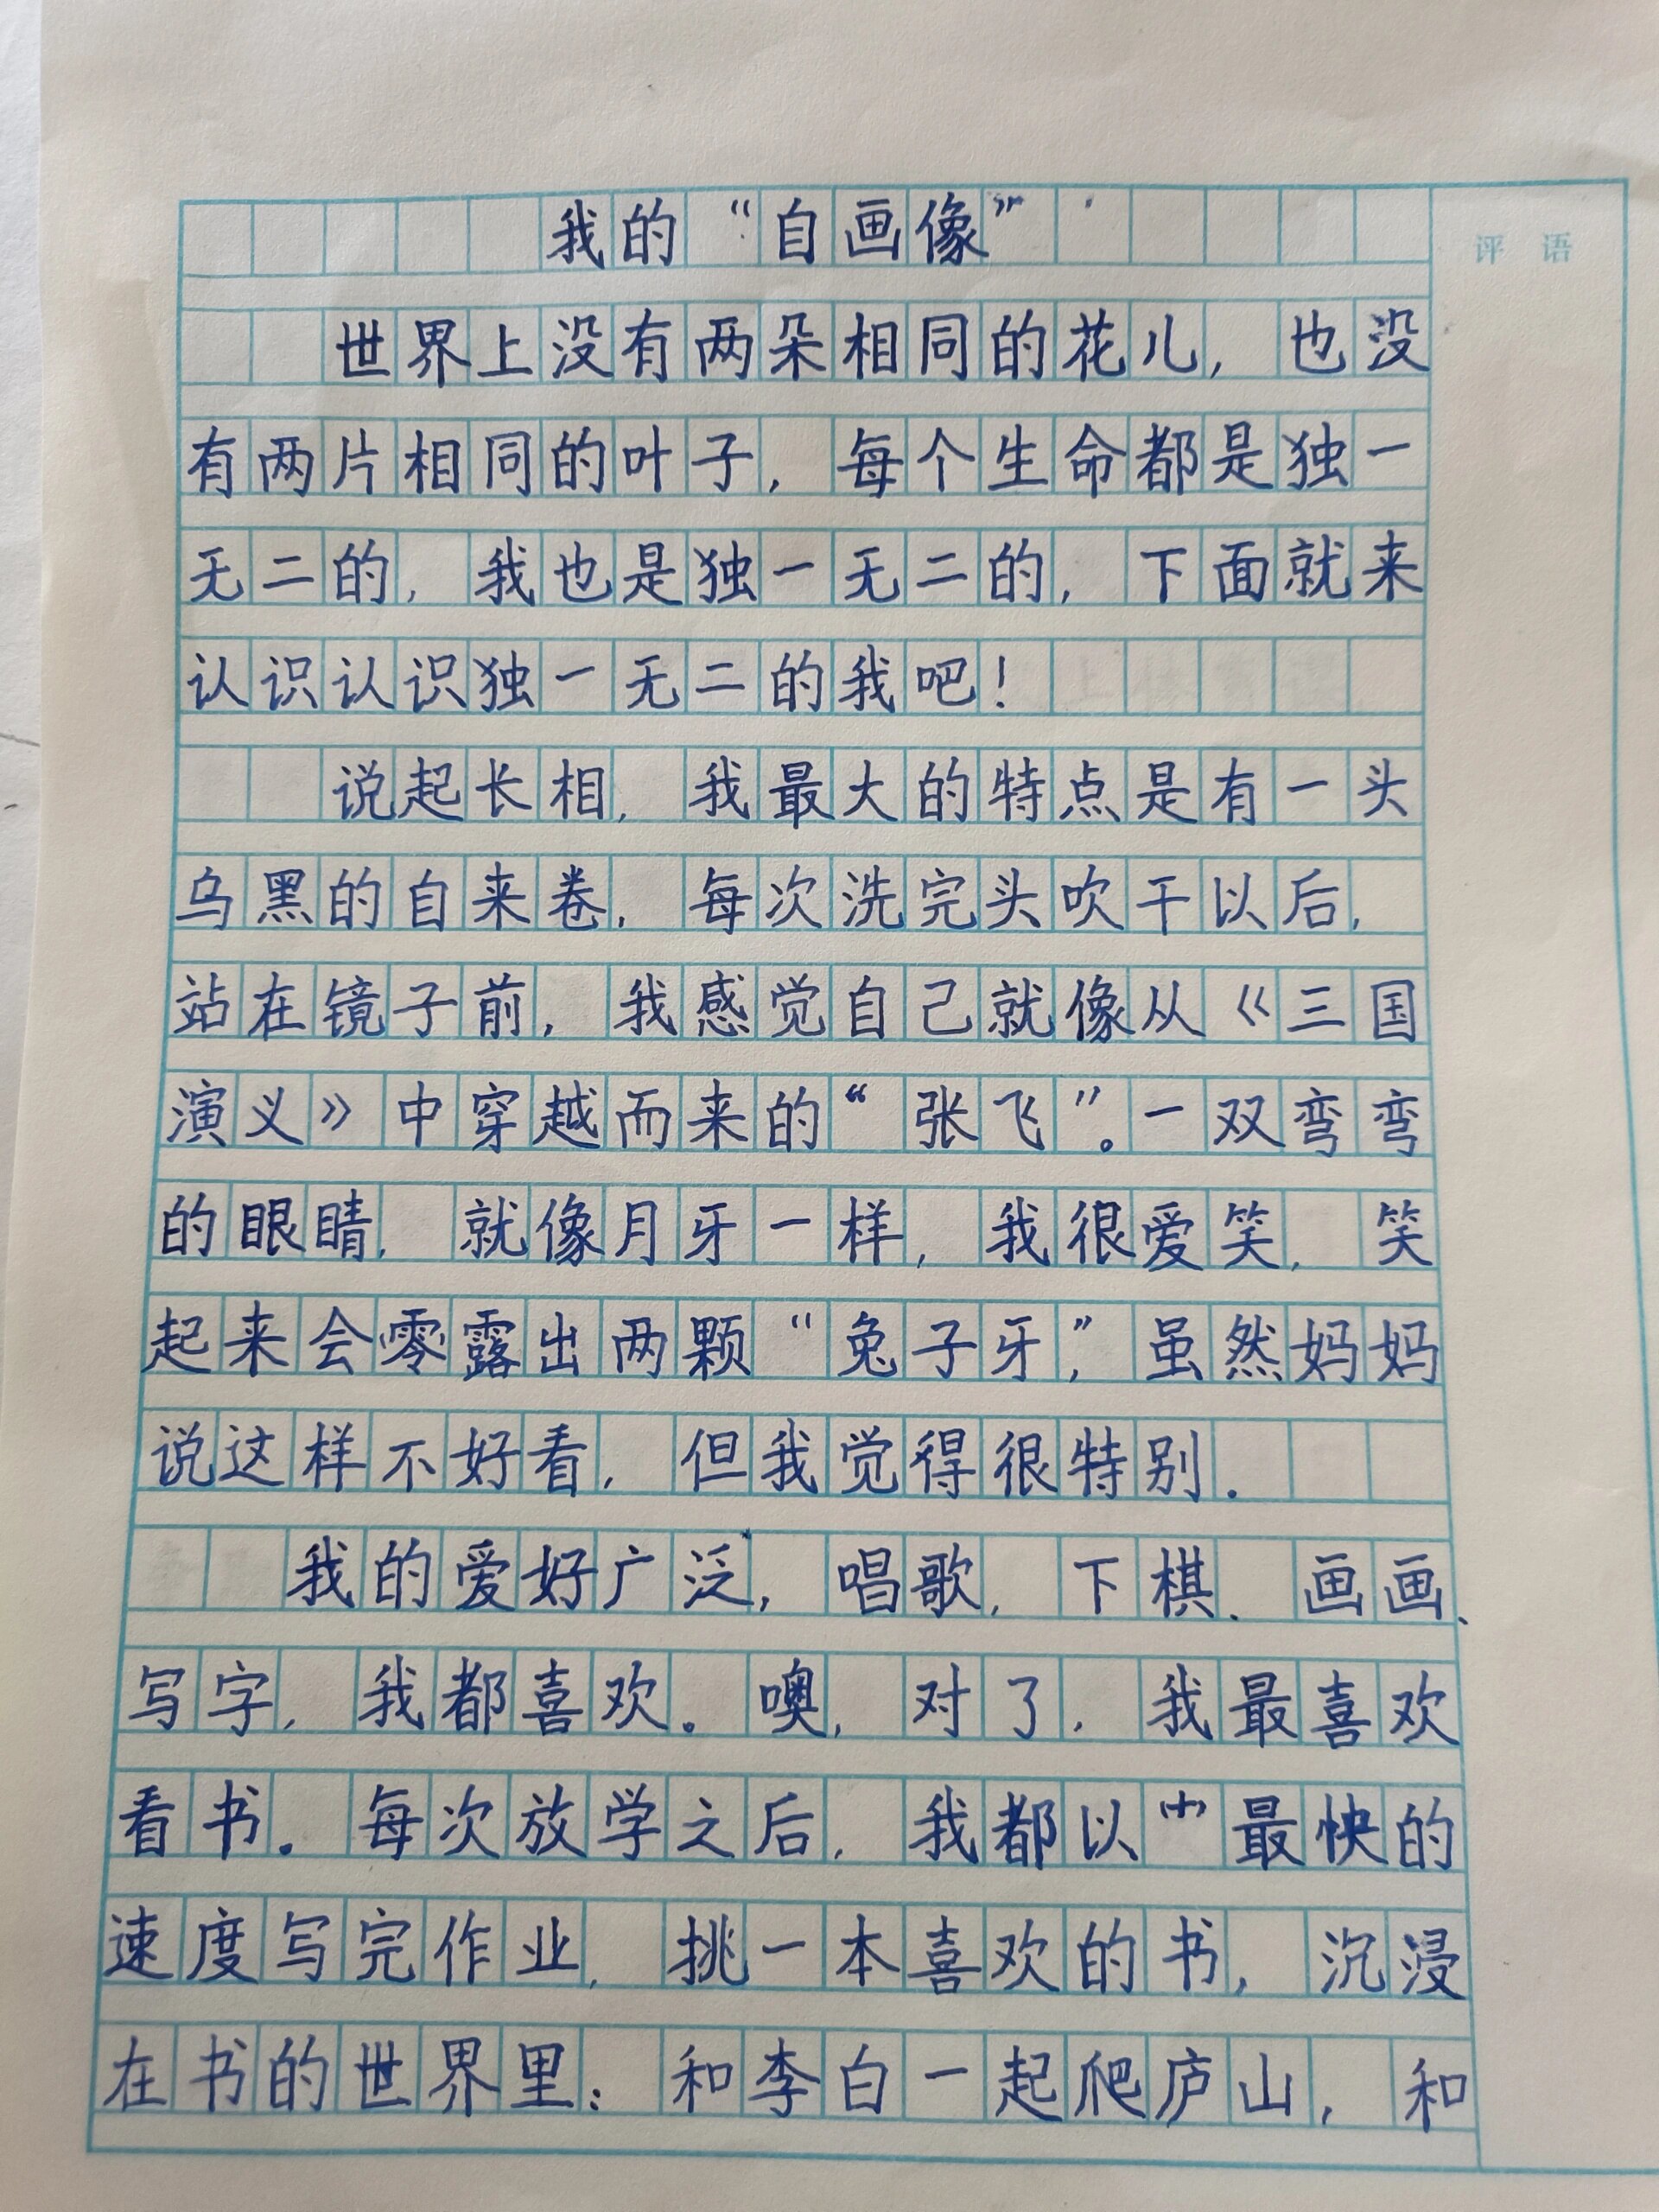 我的“自画像”
评语
世界上没有两朵相同的花儿，也没
有两片相同的叶子，每个生命都是独一
无二的，我也是独一无二的，下面就来
认识认识独一无二的我吧！
说起长相，我最大的特点是有一头
乌黑的自来卷，每次洗完头吹干以后，
站在镜子前，我感觉自己就像从《三国
演义》中穿越而来的“张飞”。一双弯弯
的眼睛，就像月牙一样，我很爱笑，笑
起来会零露出两颗“兔子牙，”虽然妈妈
说这样不好看，但我觉得很特别．
我的爱好广泛，唱歌，下棋、画画、
写字，我都喜欢。噢，对了，我最喜欢
看书。每次放学之后，我都以最快的
速度写完作业，挑一本喜欢的书，沉浸
在书的世界里：和李白一起爬庐山，和